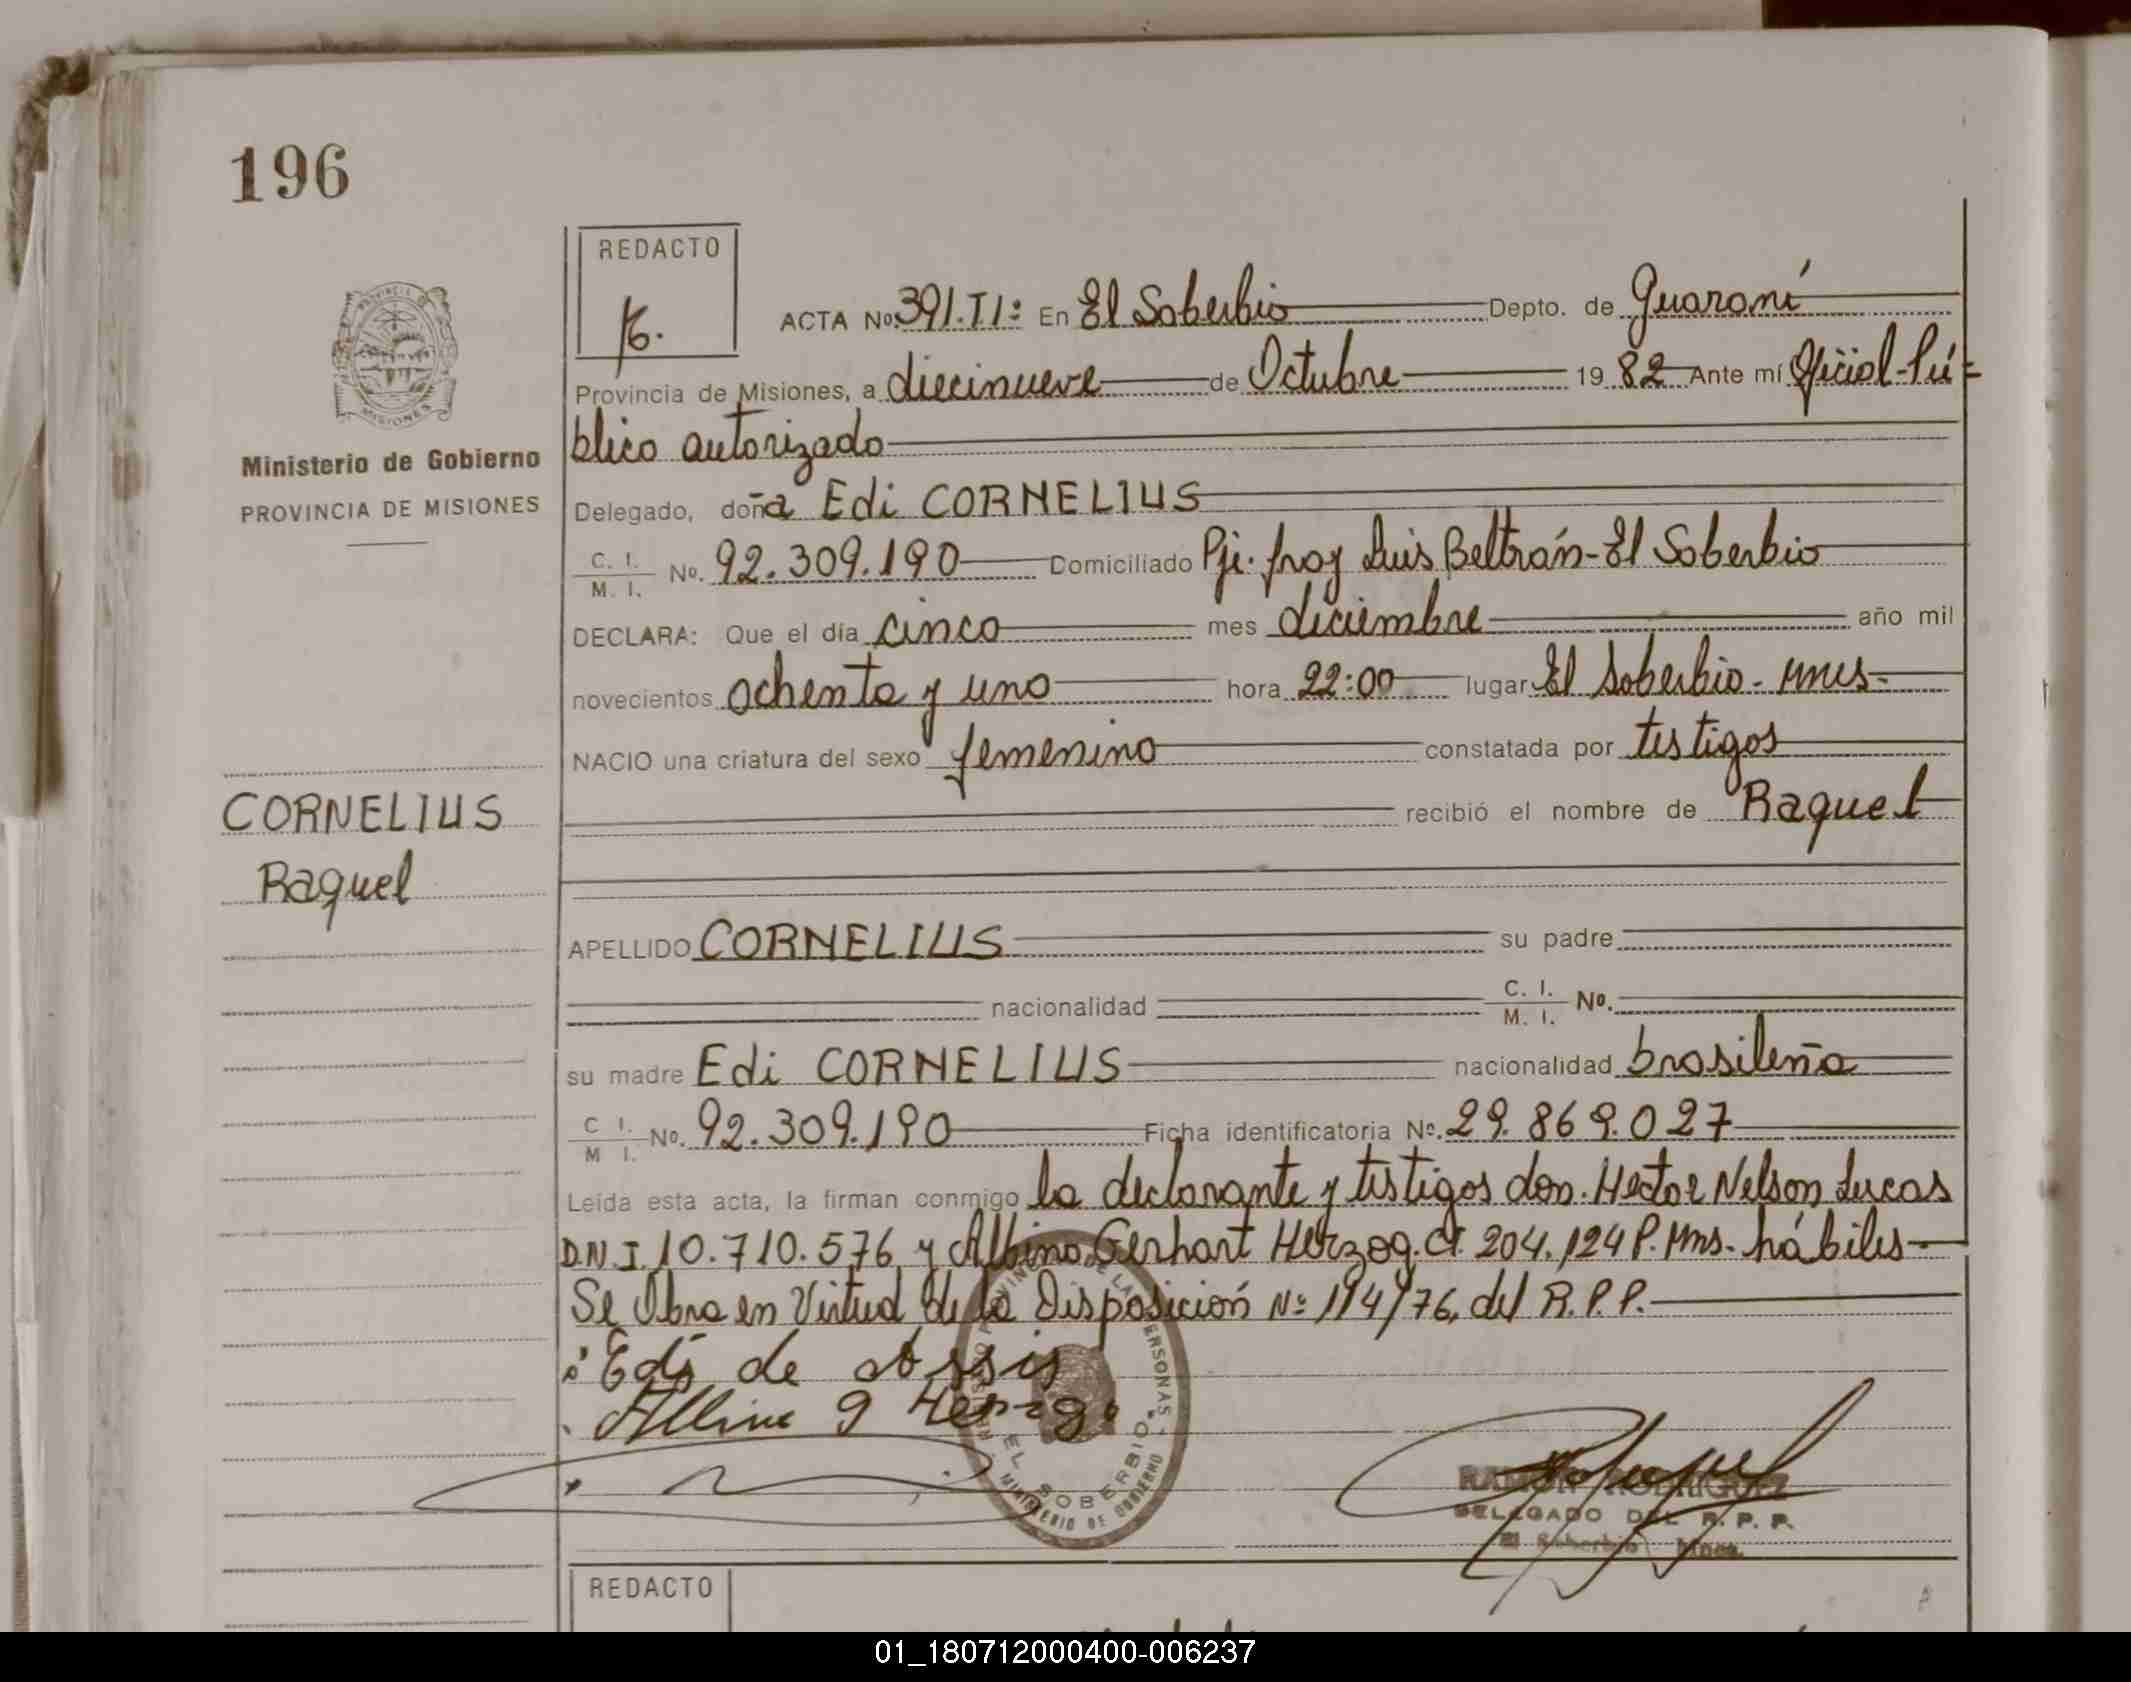 196
REDACTO
ACTA No. 391.T1: En El Soberbio Depto. de Guaraní
Provincia de Misiones, a diecinueve de Octubre 19 82 Ante mí Oficial Pú=
blico autorizado
Ministerio de Gobierno
PROVINCIA DE MISIONES
Delegado, doña Edi CORNELIUS
C. I.
M. I. No. 92.309.190 Domiciliado Pje. fray Luis Beltrán - El Soberbio
DECLARA: Que el día cinco mes diciembre año mil
novecientos ochenta y uno hora 22:00 lugar El Soberbio - Mnes-
NACIO una criatura del sexo femenino constatada por testigos
recibió el nombre de Raquel
CORNELIUS
Raquel
APELLIDO CORNELIUS su padre
nacionalidad C. I.
M. I. No.
su madre Edi CORNELIUS nacionalidad brasileña
C I.
M I. No. 92.309.190 Ficha identificatoria No. 29.869.027
Leída esta acta, la firman conmigo la declarante y testigos don. Hector Nelson Lucas
D.N.I. 10.710.576 y Albino Gerhart Herzog. CI. 204.124 P. Mns. hábiles
Se Obra en Virtud de la Disposición Nº 114/76, del R.P.P.
Edi de Assis
Albino g Herzog
EL SOBERBIO
MINISTERIO DE GOBIERNO
RAMON RODRIGUEZ
DELEGADO DEL R. P. P.
El Soberbio Mnes.
REDACTO
01_180712000400-006237